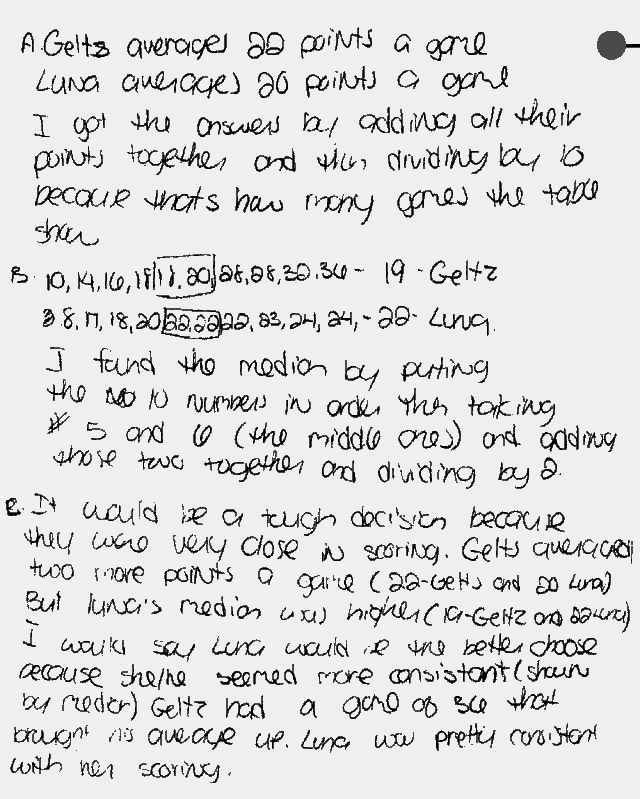 A. Geltz averages 22 points a game
Luna averages 20 points a game
I got the answers by adding all their
points together and then dividing by 10
because thats how many games the table
show
B. 10, 14, 16, 18, 18, 20, 28, 28, 32, 36 - 19 - Geltz
8, 17, 18, 20, 22, 22, 22, 23, 24, 24, - 22 - Luna.
I found the median by putting
the 10 numbers in order then taking
# 5 and 6 (the middle ones) and adding
those two together and dividing by 2.
C. It would be a tough decision because
they were very close in scoring. Geltz averaged
two more points a game (22-Geltz and 20 Luna)
But luna's median was higher (19-Geltz and 22 Luna)
I would say Luna would be the better choose
because she/he seemed more consistant (shown
by median) Geltz had a game of 36 that
brought his average up. Luna was pretty consistant
with her scoring.